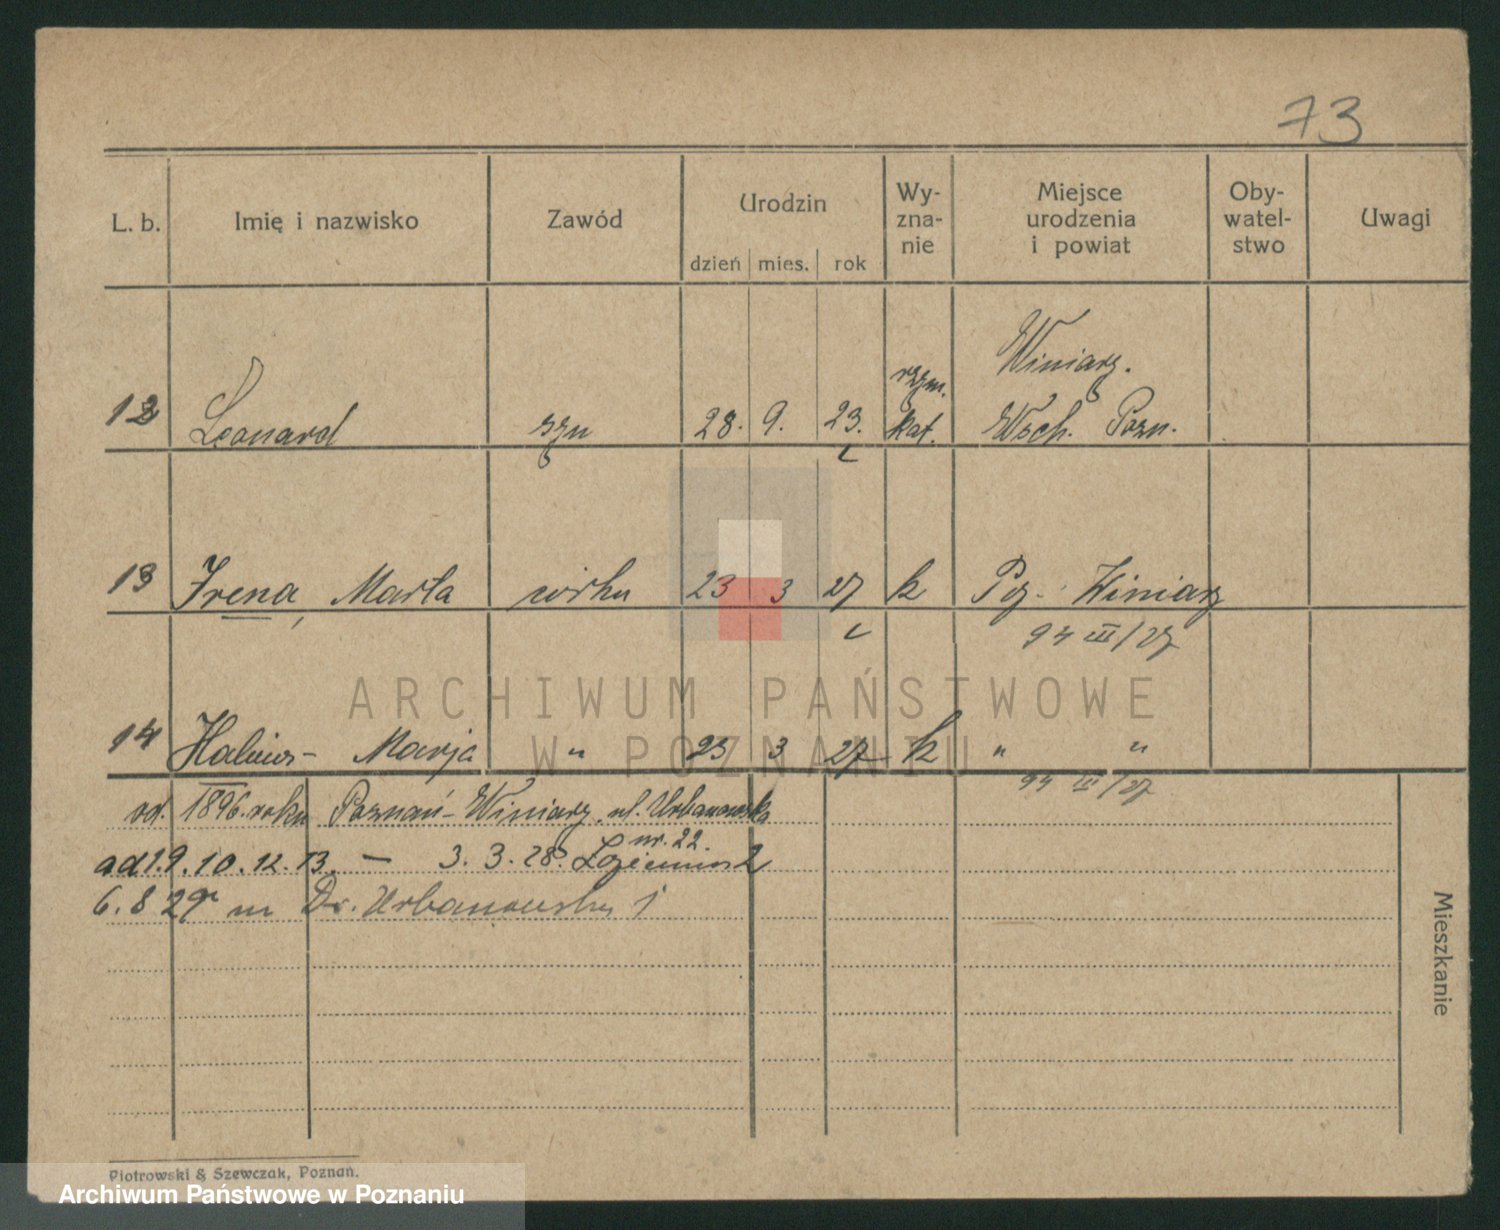 73
L. b. Imię i nazwisko Zawód Urodzin dzień mies. rok Wy-zna-nie Miejsce urodzenia i powiat Oby-watel-stwo Uwagi
Winiary.
rzym.
12 Leonard syn 28. 9. 23. kat. Wsch. Pozn.
13 Irena, Marta córka 23 3 27 k Pozn. Winiary
94 III/27
14 Halina - Marja " 23 3 27 k " "
94 III/27
od. 1896. roku Poznań - Winiary. ul. Urbanowska
nr. 22.
ad 1.9.10.12.13. — 3. 3. 28.
6. 8 29 m Dr. Urbanowska 1
Mieszkanie
Piotrowski & Szewczak, Poznań.
ARCHIWUM PAŃSTWOWE
W POZNANIU
Archiwum Państwowe w Poznaniu